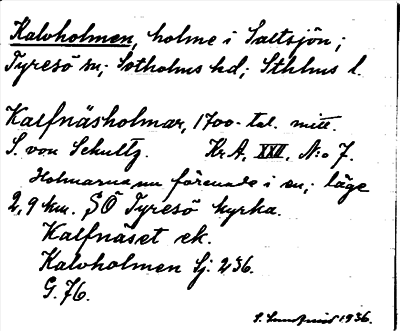 Kalvholmen, holme i Saltsjön;
Tyresö sn; Sotholms hd; Sthlms l.
Kalfnäsholmar, 1700-tal. mitt.
S. von Schultz. Kr.A. XXII. N:o 7.
Holmarna nu förenade i en; läge
2,9 km. SÖ Tyresö kyrka.
Kalfnäset ek.
Kalvholmen Sj. 236.
G. 76.
1936.